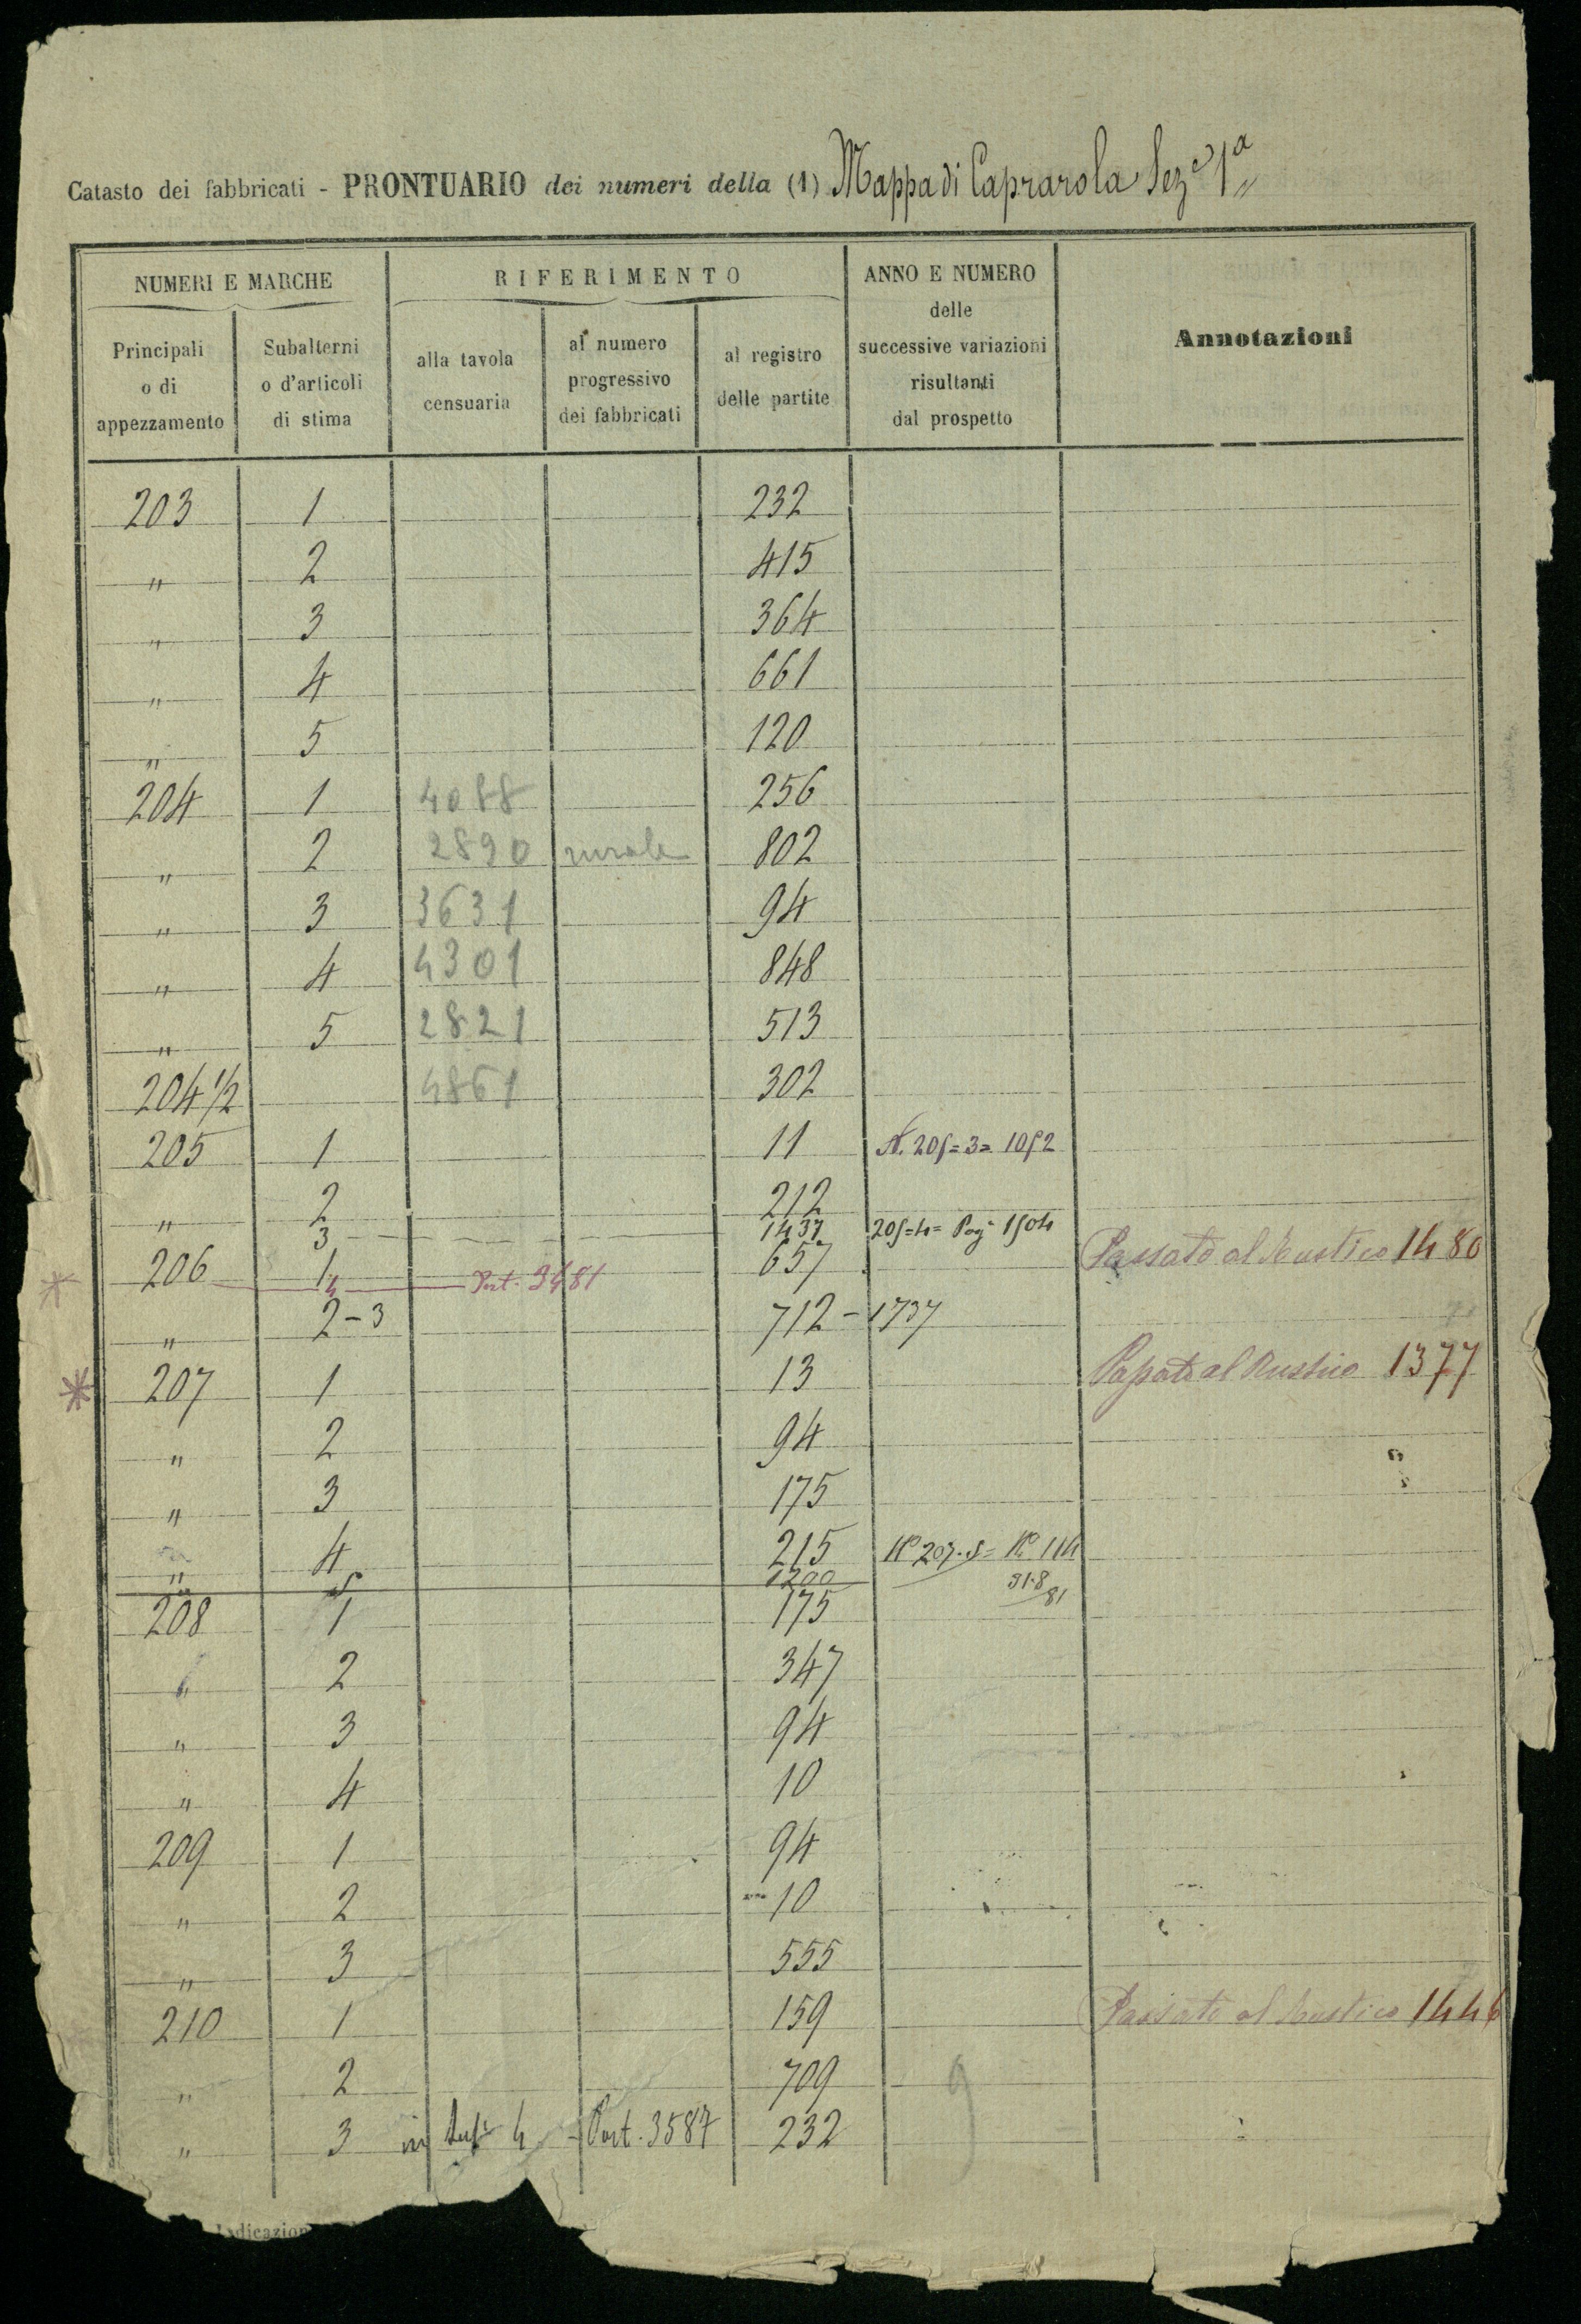 Catasto dei fabbricati - PRONTUARIO dei numeri della (1) Mappa di Caprarola Sez.e 1a
NUMERI E MARCHE
RIFERIMENTO
ANNO E NUMERO delle successive variazioni risultanti dal prospetto
Annotazioni
Principali o di appezzamento
Subalterni o d'articoli di stima
alla tavola censuaria
al numero progressivo dei fabbricati
al registro delle partite
203 1 232
" 2 415
" 3 364
" 4 661
" 5 120
204 1 4088 256
" 2 2890 rurale 802
" 3 3631 94
" 4 4301 848
" 5 2821 513
204 1/2 4861 302
205 1 11 N. 205=3= 1052
" 2 212
3 1437 205=4= Pag 1504
206 1 657 Passato al Rustico 1480
4 Part. 3481
" 2-3 712-1737
207 1 13 Passato al Rustico 1377
" 2 94
" 3 175
" 4 215 N° 207.5= N. 114
5 1200 31.8/81
208 1 175
" 2 347
" 3 94
" 4 10
209 1 94
" 2 10
" 3 555
210 1 159 Passato al Rustico 1446
" 2 709
" 3 in 4 - Part. 3587 232
Indicazion